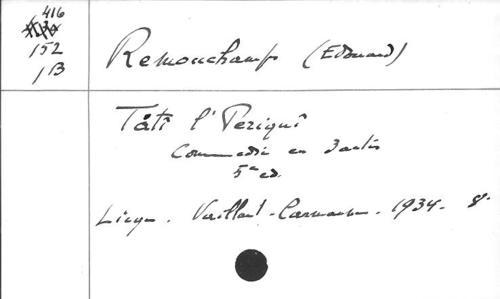 416
152
1B
Remouchamps (Edouard)
Tâtî l'Pèriquî
Commedie en 3 actes
5e ed.
Liège. Vaillant-Carmanne. 1934. 8°